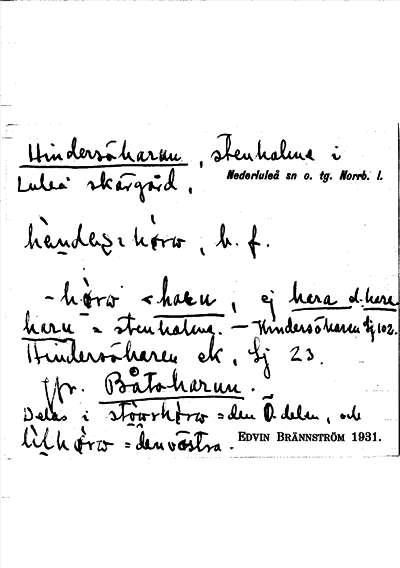 Hindersöharun, stenholme i
Luleå skärgård,
Nederluleå sn o. tg. Norrb. l.
b. f.
harun, ej hara d. hara
harun = stenholme. — Hindersöharen Sj 102.
Hindersöharen ek, Sj 23.
Jfr. Båtöharun.
Delas i = den Ö. delen, och
= den västra.
EDVIN BRÄNNSTRÖM 1931.